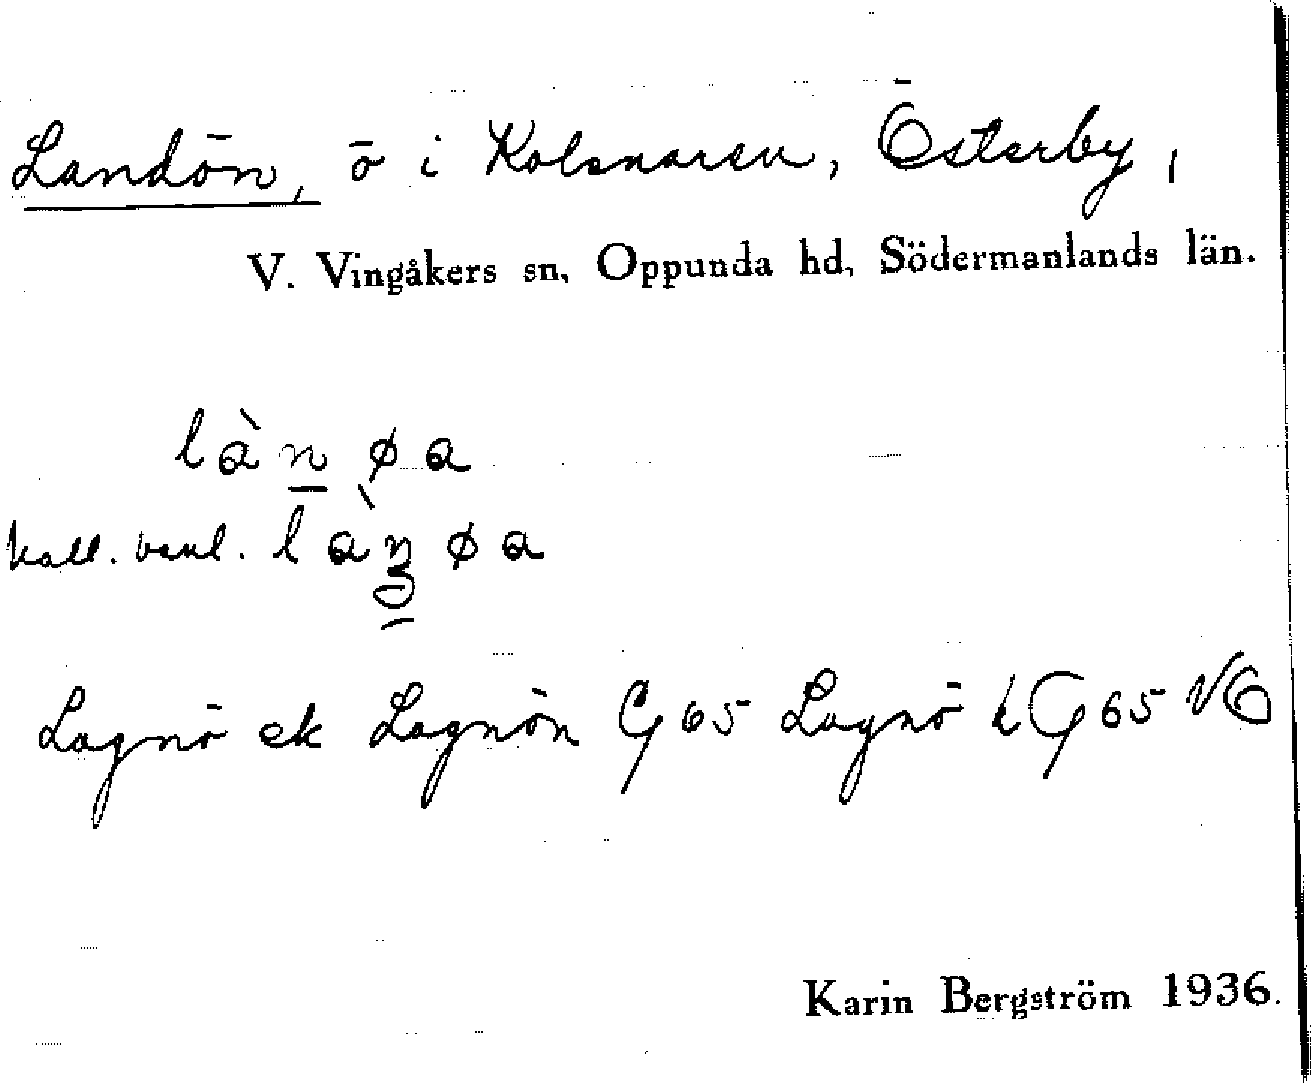 Landön, ö i Kolsnaren, Österby,
V. Vingåkers sn, Oppunda hd, Södermanlands län.
là n ø a
kall. vanl. l à ŋ ø a
Lagnö ek Lagnön G 65 Lagnö h G 65 VÖ
Karin Bergström 1936.